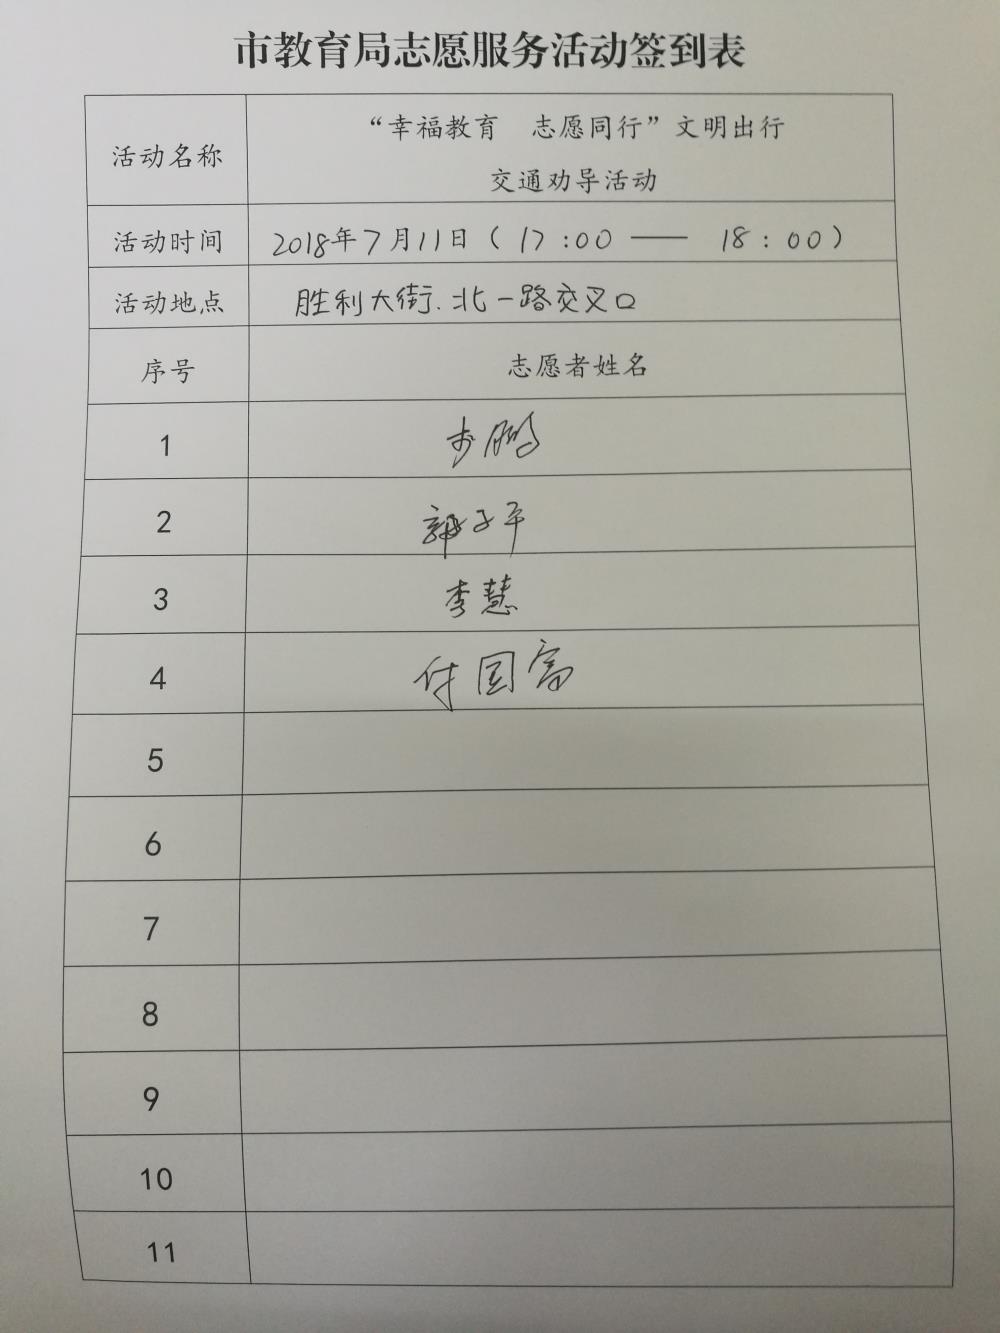 市教育局志愿服务活动签到表
活动名称
“幸福教育 志愿同行”文明出行
交通劝导活动
活动时间
2018年7月11日(17:00 —— 18:00)
活动地点
胜利大街.北一路交叉口
序号
志愿者姓名
1
步鹏
2
郭子平
3
李慧
4
付国富
5
6
7
8
9
10
11